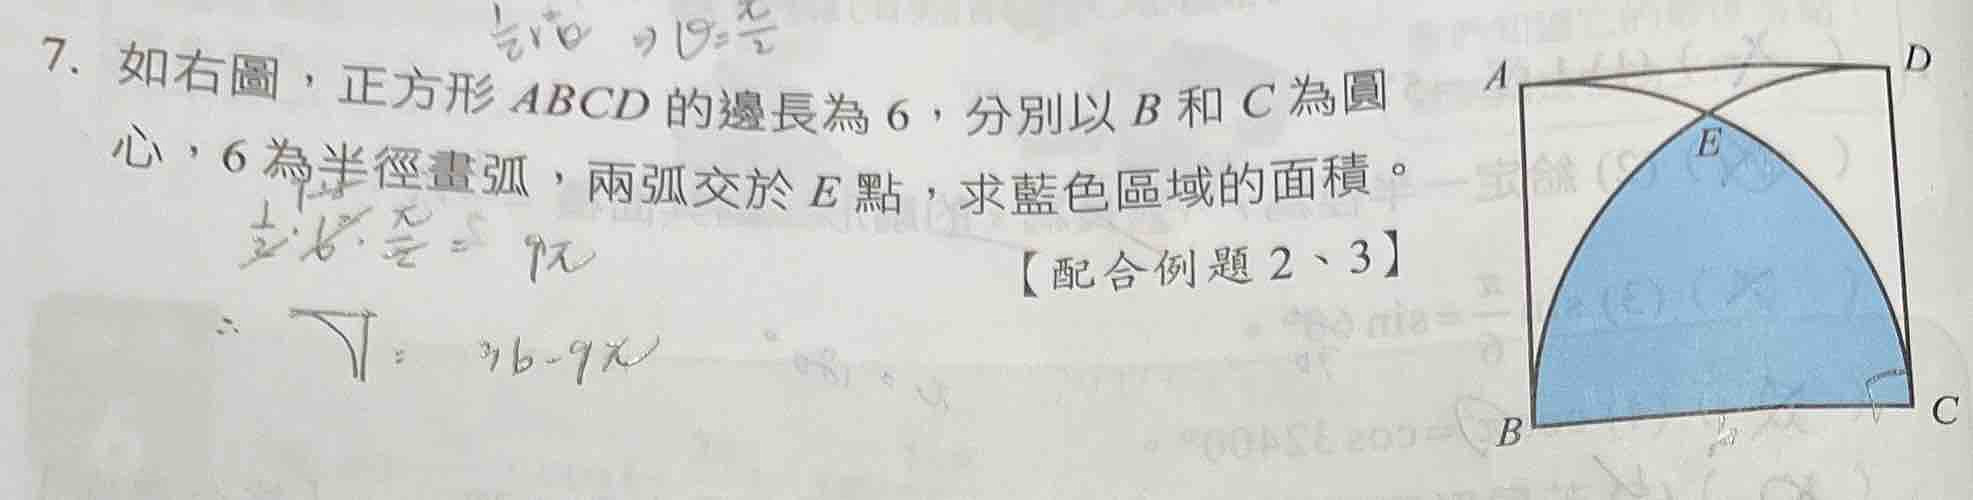 7. 如右圖，正方形 ABCD 的邊長為 6，分別以 B 和 C 為圓
心，6 為半徑畫弧，兩弧交於 E 點，求藍色區域的面積。
【配合例題 2、3】
θ=π/2
1/2·6²·π/2= 9π
∴ = 36-9π
A
D
E
B
C